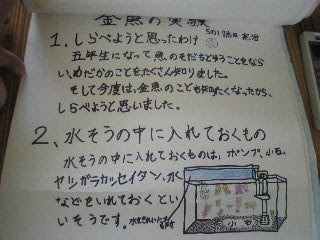 金魚の実験
1、しらべようと思ったわけ
五年生になって魚のそだちという ことをなら
い、めだかのことをたくさん知りました。
そして今度は、金魚のことも知りたくなったから、
しらべようと思いました。
2、水そうの中に入れておくもの
水そうの中に入れておくものは、ポンプ、小石、
ヤシガラカッセイタン、水
などをいれておくとい
いそうです。
小石